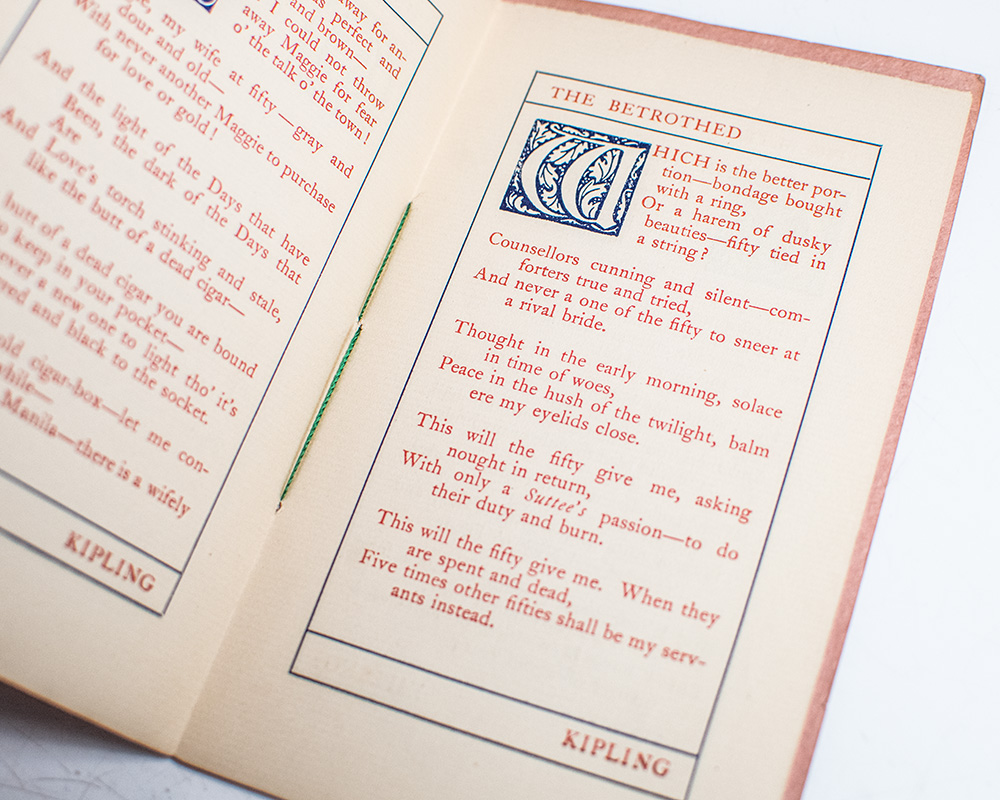 away for an-
is perfect and
and brown—
I could not throw
away Maggie for fear
o' the talk o' the town!
my wife at fifty—gray and
dour and old—
With never another Maggie to purchase
for love or gold!
And the light of the Days that have
Been, the dark of the Days that
Are
And Love's torch stinking and stale,
like the butt of a dead cigar—
butt of a dead cigar you are bound
keep in your pocket—
a new one to light tho' it's
and black to the socket.
cigar-box—let me con-
while—
Manila—there is a wifely
KIPLING
THE BETROTHED
WHICH is the better por-
tion—bondage bought
with a ring,
Or a harem of dusky
beauties—fifty tied in
a string?
Counsellors cunning and silent—com-
forters true and tried,
And never a one of the fifty to sneer at
a rival bride.
Thought in the early morning, solace
in time of woes,
Peace in the hush of the twilight, balm
ere my eyelids close.
This will the fifty give me, asking
nought in return,
With only a Suttee's passion—to do
their duty and burn.
This will the fifty give me. When they
are spent and dead,
Five times other fifties shall be my serv-
ants instead.
KIPLING